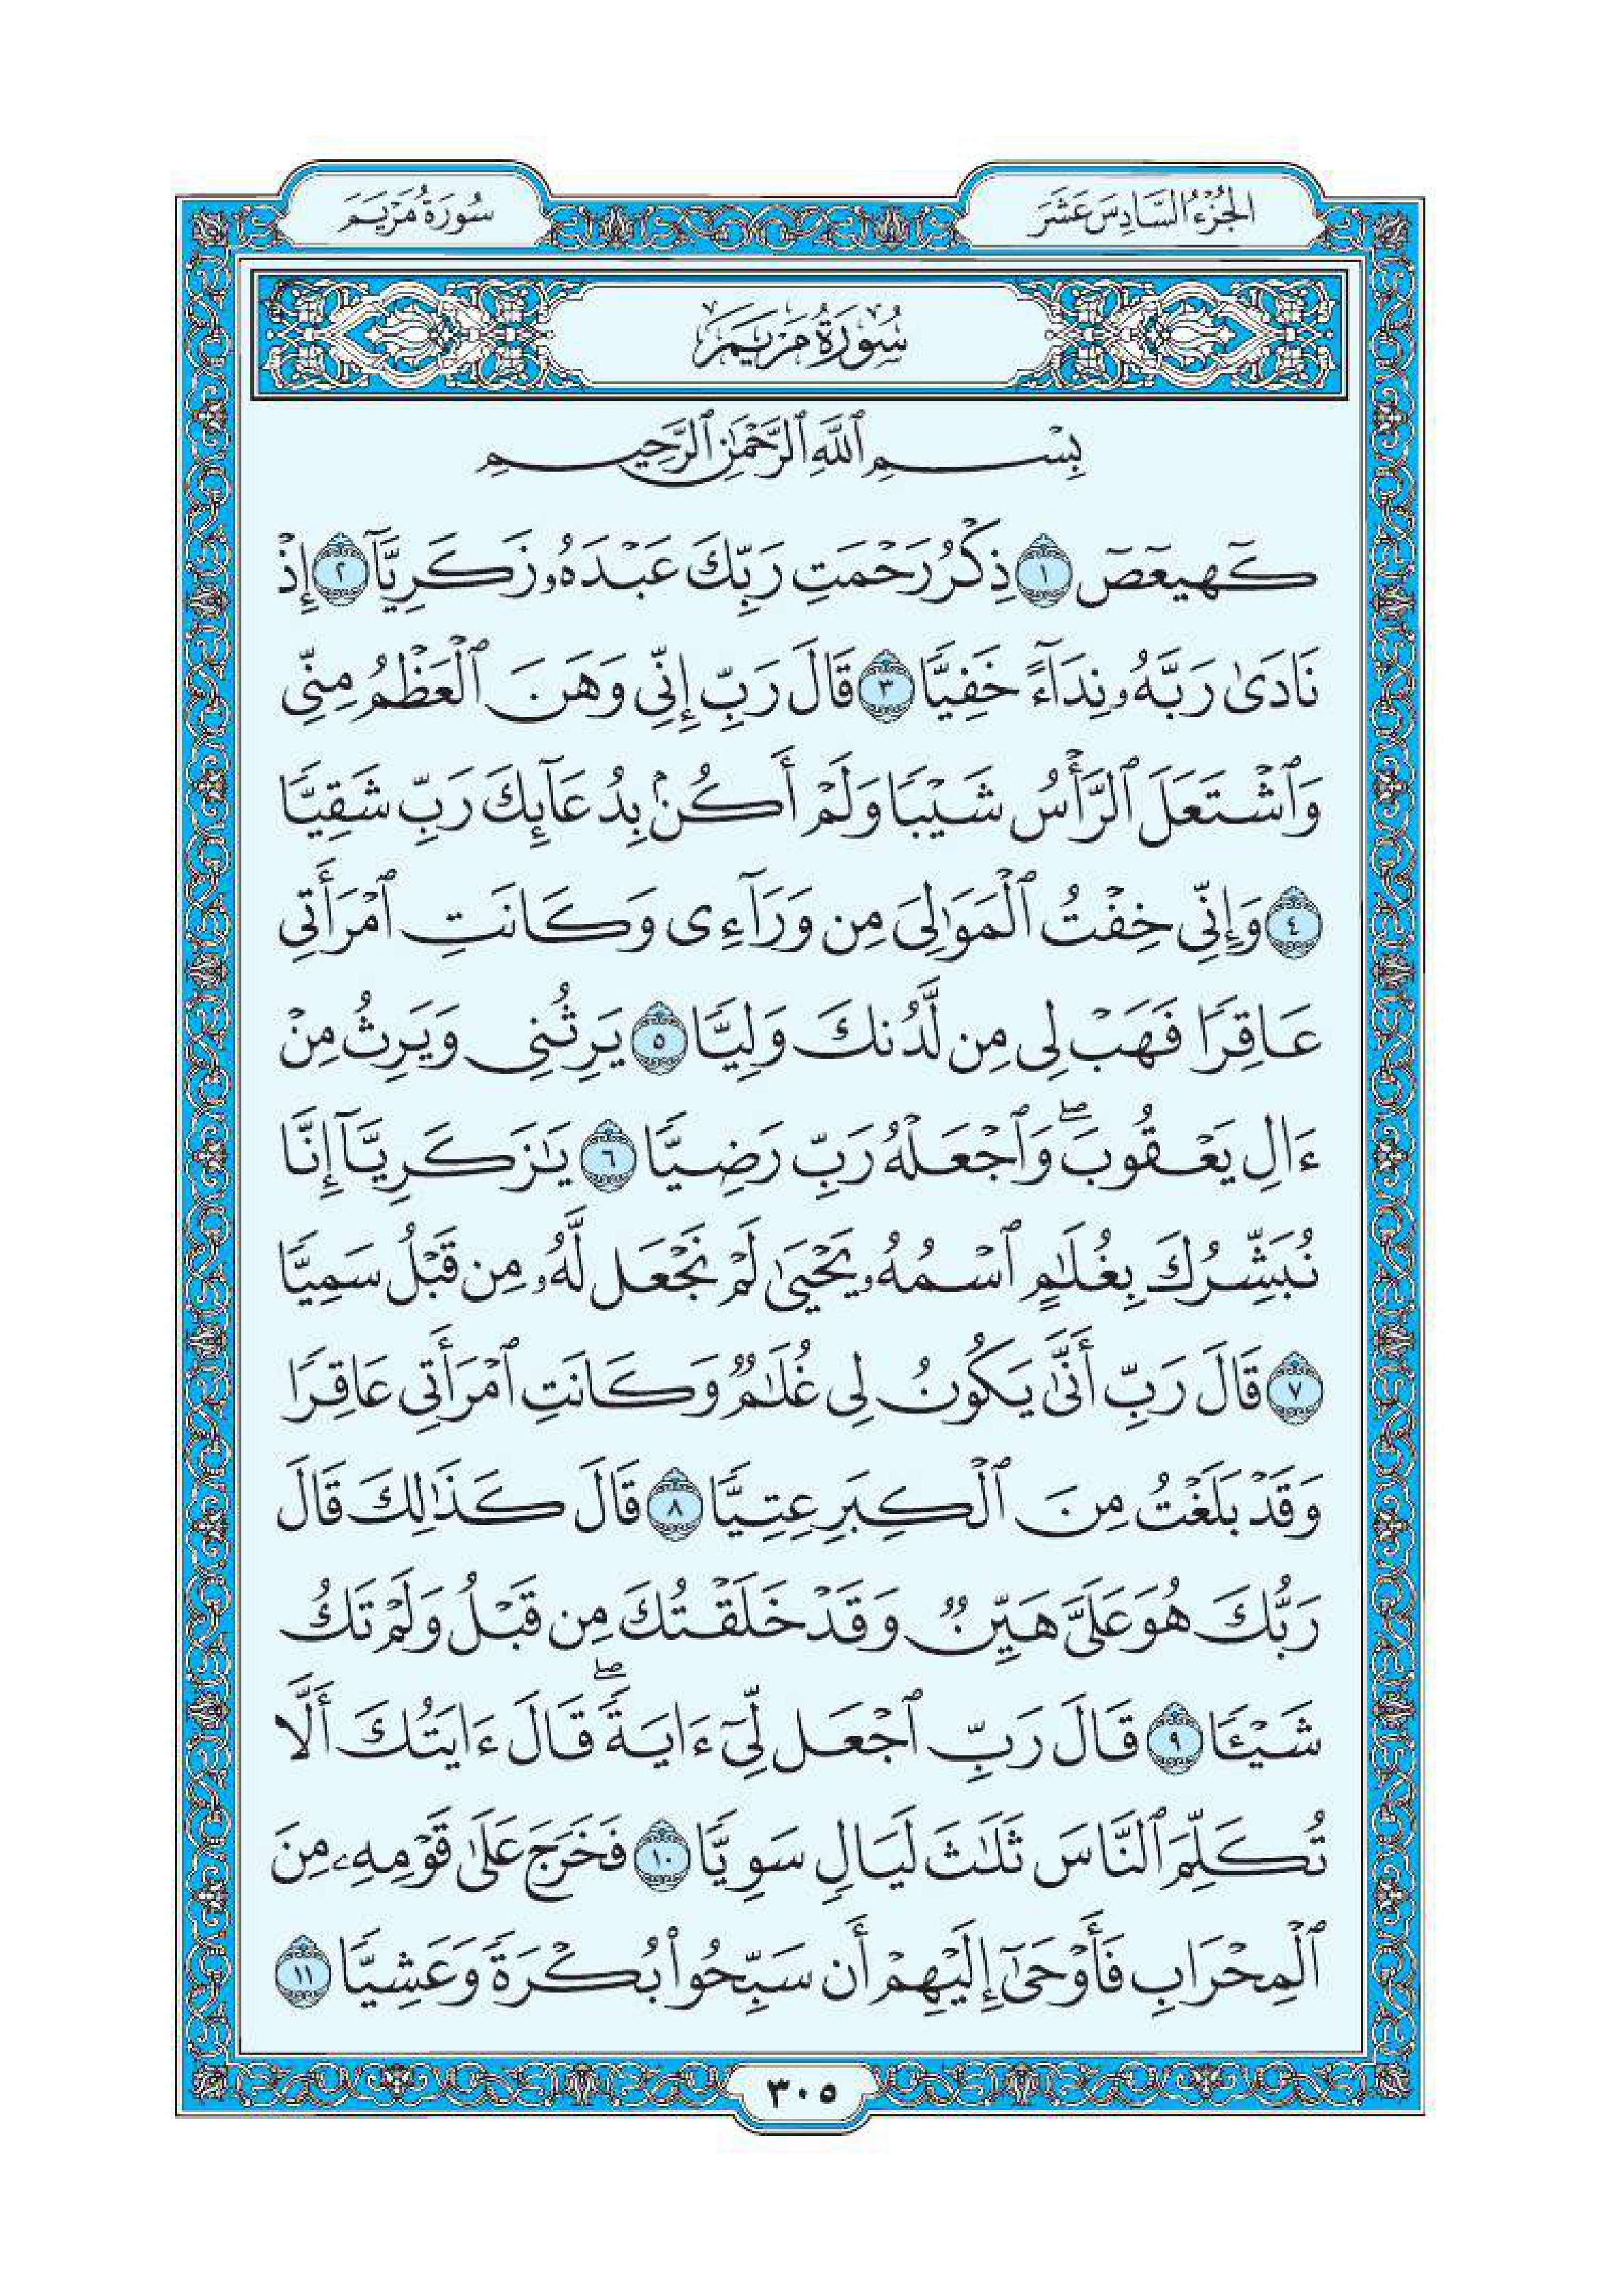 الجُزْءُ السَّادِسَ عَشَرَ
سُورَةُ مَرْيَم
سُورَةُ مَرْيَم
بِسْمِ ٱللَّهِ ٱلرَّحْمَٰنِ ٱلرَّحِيمِ
كٓهيعٓصٓ ١ ذِكْرُ رَحْمَتِ رَبِّكَ عَبْدَهُۥ زَكَرِيَّآ ٢ إِذْ
نَادَىٰ رَبَّهُۥ نِدَآءً خَفِيًّا ٣ قَالَ رَبِّ إِنِّى وَهَنَ ٱلْعَظْمُ مِنِّى
وَٱشْتَعَلَ ٱلرَّأْسُ شَيْبًا وَلَمْ أَكُنۢ بِدُعَآئِكَ رَبِّ شَقِيًّا
٤ وَإِنِّى خِفْتُ ٱلْمَوَٰلِىَ مِن وَرَآءِى وَكَانَتِ ٱمْرَأَتِى
عَاقِرًا فَهَبْ لِى مِن لَّدُنكَ وَلِيًّا ٥ يَرِثُنِى وَيَرِثُ مِنْ
ءَالِ يَعْقُوبَ ۖ وَٱجْعَلْهُ رَبِّ رَضِيًّا ٦ يَٰزَكَرِيَّآ إِنَّا
نُبَشِّرُكَ بِغُلَٰمٍ ٱسْمُهُۥ يَحْيَىٰ لَمْ نَجْعَل لَّهُۥ مِن قَبْلُ سَمِيًّا
٧ قَالَ رَبِّ أَنَّىٰ يَكُونُ لِى غُلَٰمٌ وَكَانَتِ ٱمْرَأَتِى عَاقِرًا
وَقَدْ بَلَغْتُ مِنَ ٱلْكِبَرِ عِتِيًّا ٨ قَالَ كَذَٰلِكَ قَالَ
رَبُّكَ هُوَ عَلَىَّ هَيِّنٌ وَقَدْ خَلَقْتُكَ مِن قَبْلُ وَلَمْ تَكُ
شَيْـًٔا ٩ قَالَ رَبِّ ٱجْعَل لِّىٓ ءَايَةً ۖ قَالَ ءَايَتُكَ أَلَّا
تُكَلِّمَ ٱلنَّاسَ ثَلَٰثَ لَيَالٍ سَوِيًّا ١٠ فَخَرَجَ عَلَىٰ قَوْمِهِۦ مِنَ
ٱلْمِحْرَابِ فَأَوْحَىٰٓ إِلَيْهِمْ أَن سَبِّحُوا۟ بُكْرَةً وَعَشِيًّا ١١
٣٠٥